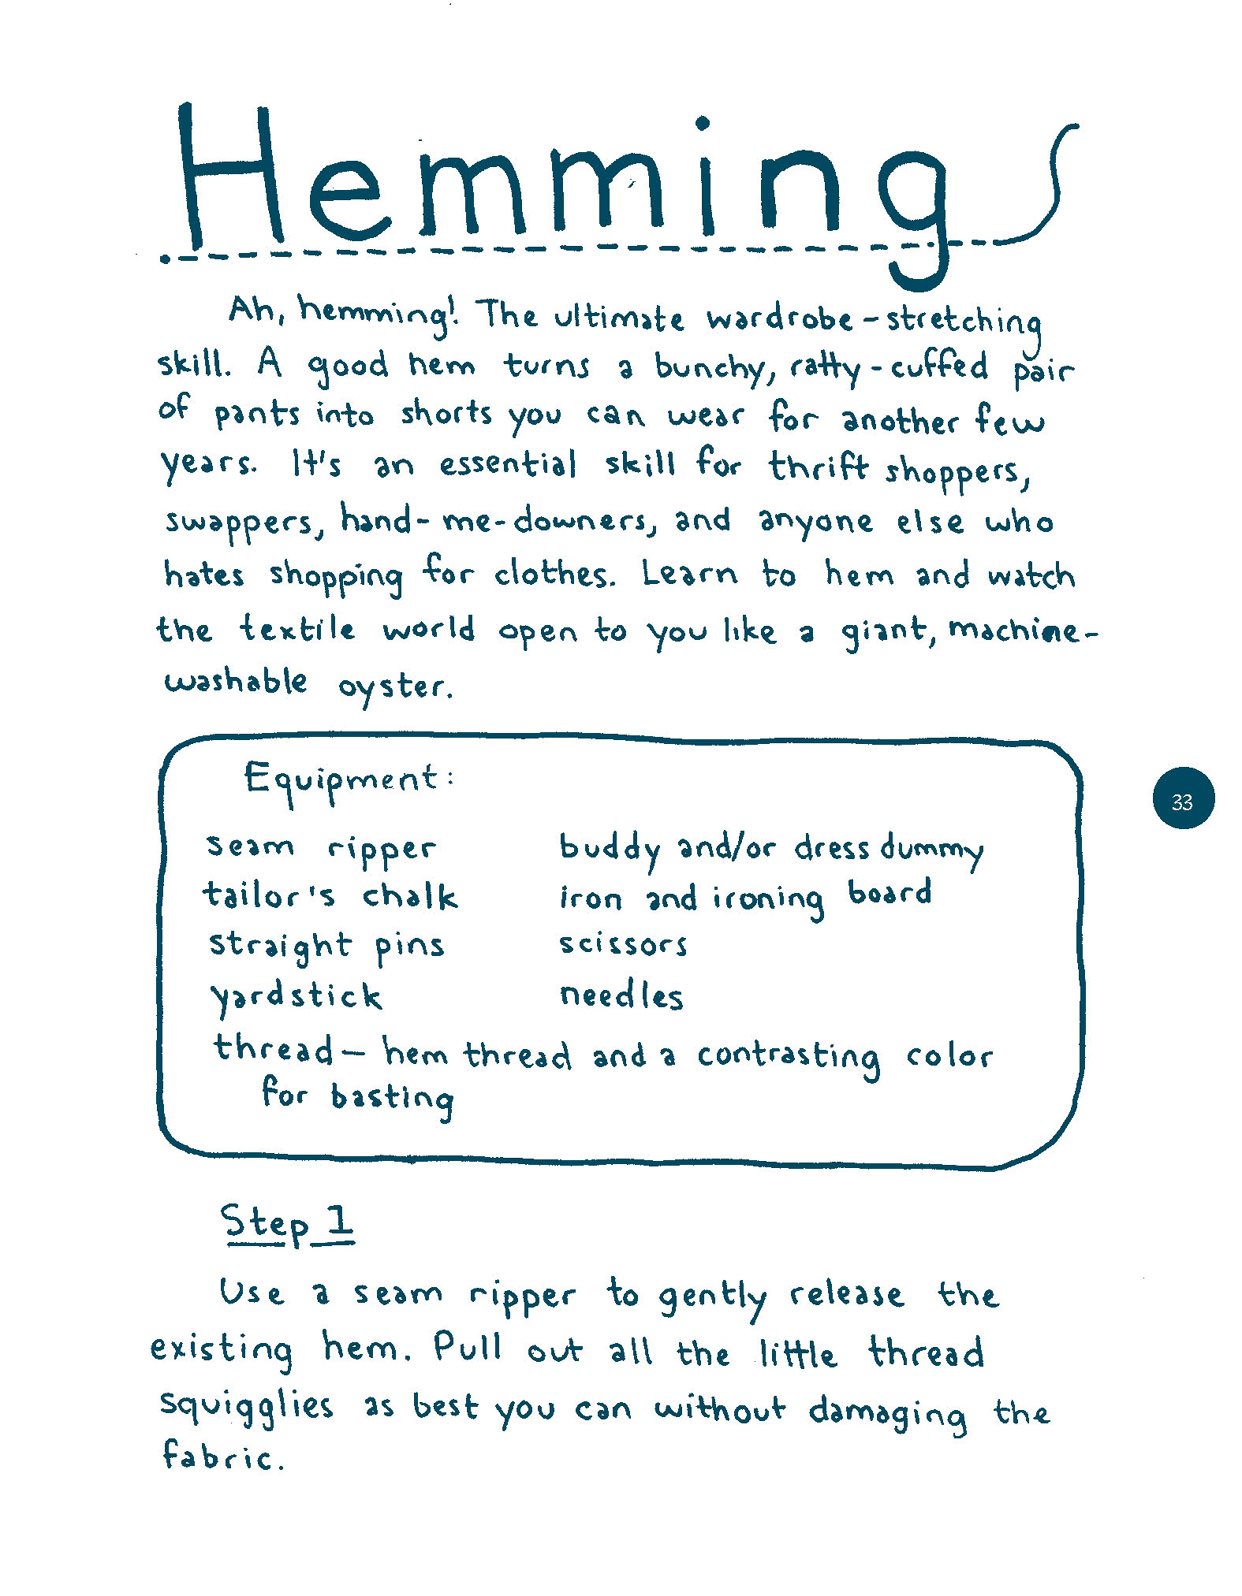 Hemming
Ah, hemming! The ultimate wardrobe-stretching
skill. A good hem turns a bunchy, ratty-cuffed pair
of pants into shorts you can wear for another few
years. It's an essential skill for thrift shoppers,
swappers, hand-me-downers, and anyone else who
hates shopping for clothes. Learn to hem and watch
the textile world open to you like a giant, machine-
washable oyster.
Equipment:
seam ripper
tailor's chalk
straight pins
yardstick
buddy and/or dress dummy
iron and ironing board
scissors
needles
thread — hem thread and a contrasting color
for basting
33
Step 1
Use a seam ripper to gently release the
existing hem. Pull out all the little thread
squigglies as best you can without damaging the
fabric.